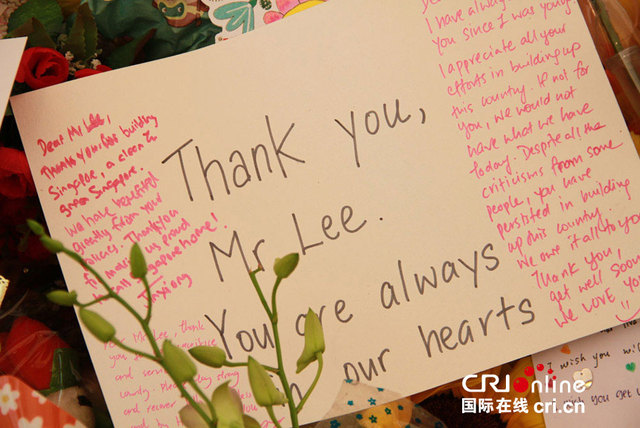 Thank
Dear Mr Lee,
Thank you for building
Singapore, a clean &
green Singapore.
We have benefited
greatly from your
policies. Thank you
for making us proud
to call Singapore home!
Thank you,
Mr Lee.
You are always
in our hearts
I have always
you since I was young
I appreciate all your
efforts in building up
this country. If not for
you, we would not
have what we have
today. Despite all the
criticisms from some
people, you have
persisted in building
up this country.
We owe it all to you
Thank you,
get well soon
We love you!
Dear Mr Lee, thank
you
and
country. Please stay strong
and recover
I wish you
wish you get
CRI Online
国际在线 cri.cn